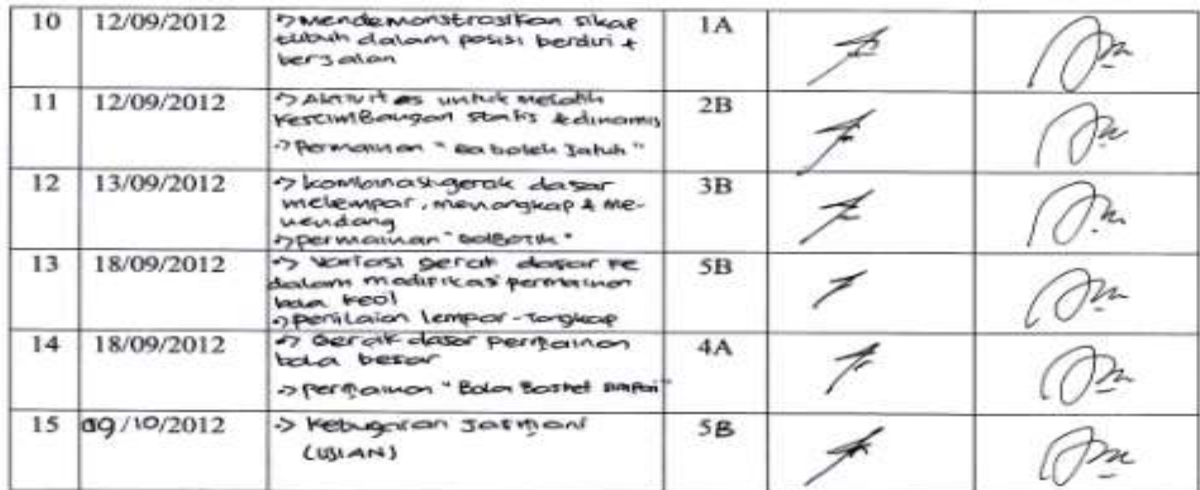 10 12/09/2012 -> Mendemonstrasikan sikap 1A
tubuh dalam posisi berdiri +
berjalan
11 12/09/2012 -> Aktivitas untuk melatih 2B
keseimbangan statis & dinamis
-> Permainan "
12 13/09/2012 -> kombinasi gerak dasar 3B
melempar, menangkap & me-
nendang
-> permainan "
13 18/09/2012 -> Variasi gerak dasar ke 5B
dalam modifikasi permainan
bola kecil
-> penilaian lempar-tangkap
14 18/09/2012 -> Gerak dasar permainan 4A
bola besar
-> permainan "Bola Basket simpai"
15 09/10/2012 -> Kebugaran Jasmani 5B
(UJIAN)